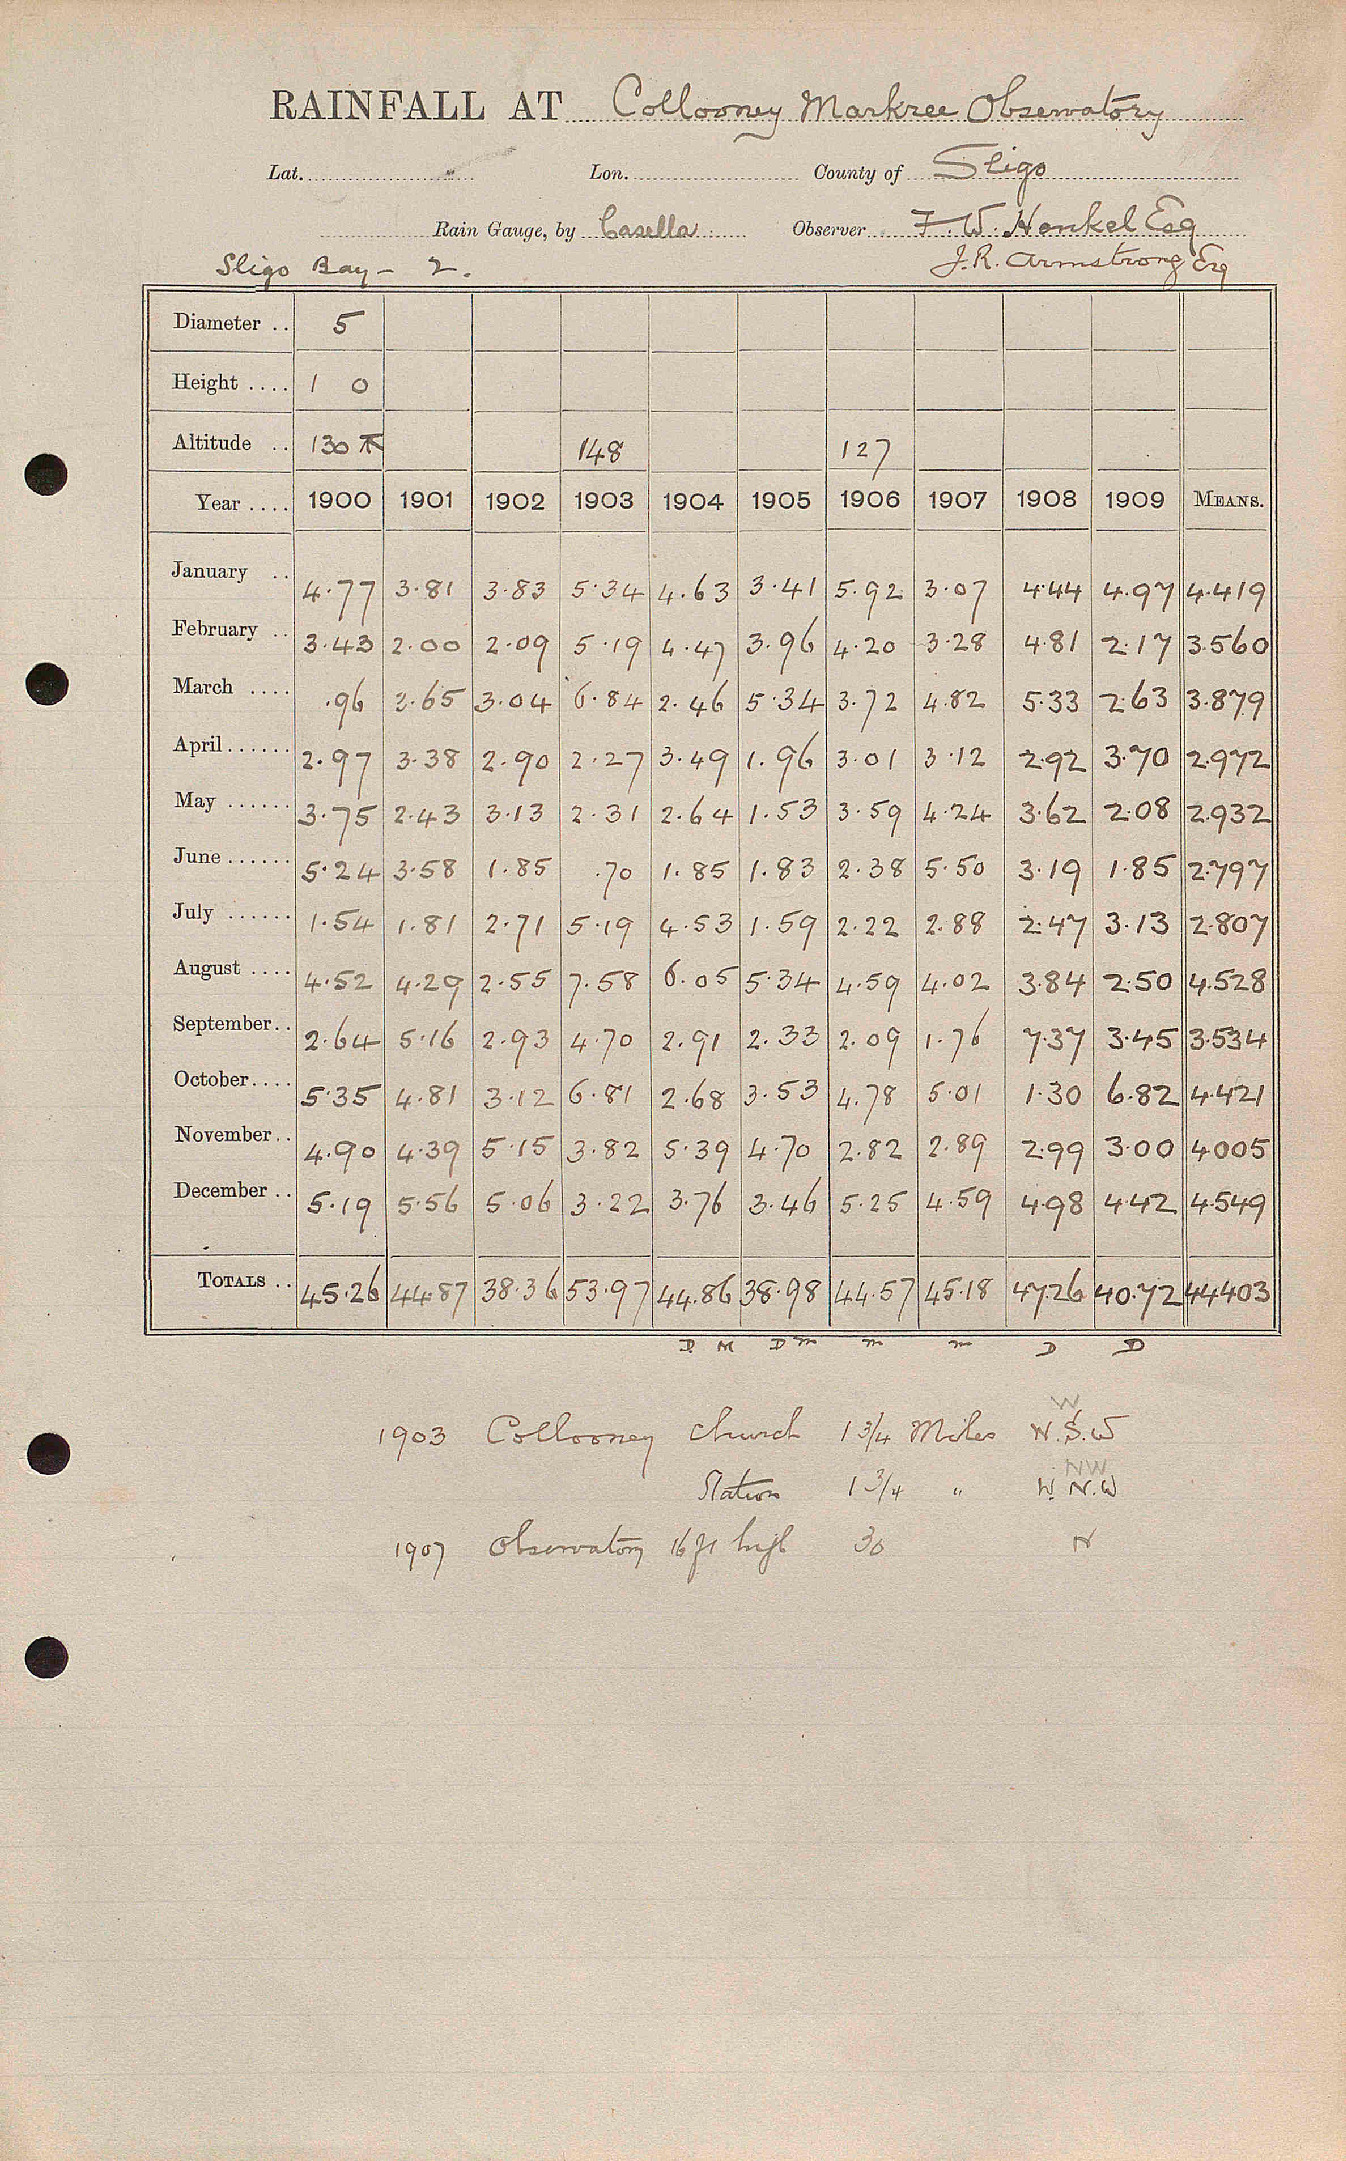 RAINFALL AT Collooney Markree Observatory
Lat. Lon. County of Sligo
Rain Gauge, by Casella Observer F. W. Henkel Esq
Sligo Bay - 2. J. R. Armstrong Esq
Diameter .. 5
Height .... 1 0
Altitude .. 130 148 127
Year .... 1900 1901 1902 1903 1904 1905 1906 1907 1908 1909 MEANS.
January .. 4.77 3.81 3.83 5.34 4.63 3.41 5.92 3.07 4.44 4.97 4.419
February .. 3.43 2.00 2.09 5.19 4.47 3.96 4.20 3.28 4.81 2.17 3.560
March .... .96 3.65 3.04 6.84 2.46 5.34 3.72 4.82 5.33 2.63 3.879
April ...... 2.97 3.38 2.90 2.27 3.49 1.96 3.01 3.12 2.92 3.70 2.972
May ...... 3.75 2.43 3.13 2.31 2.64 1.53 3.59 4.24 3.62 2.08 2.932
June ...... 5.24 3.58 1.85 .70 1.85 1.83 2.38 5.50 3.19 1.85 2.797
July ...... 1.54 1.81 2.71 5.19 4.53 1.59 2.22 2.88 2.47 3.13 2.807
August .... 4.52 4.29 2.55 7.58 6.05 5.34 4.59 4.02 3.84 2.50 4.528
September.. 2.64 5.16 2.93 4.70 2.91 2.33 2.09 1.76 7.37 3.45 3.534
October.... 5.35 4.81 3.12 6.81 2.68 3.53 4.78 5.01 1.30 6.82 4.421
November.. 4.90 4.39 5.15 3.82 5.39 4.70 2.82 2.89 2.99 3.00 4005
December .. 5.19 5.56 5.06 3.22 3.76 3.46 5.25 4.59 4.98 4.42 4.549
TOTALS .. 45.26 44.87 38.36 53.97 44.86 38.98 44.57 45.18 47.26 40.72 44403
D M D m m m D D
W
1903 Collooney Church 1 3/4 Miles W.S.W
NW
Station 1 3/4 " W.N.W
1907 Observatory 16 ft high 30 N